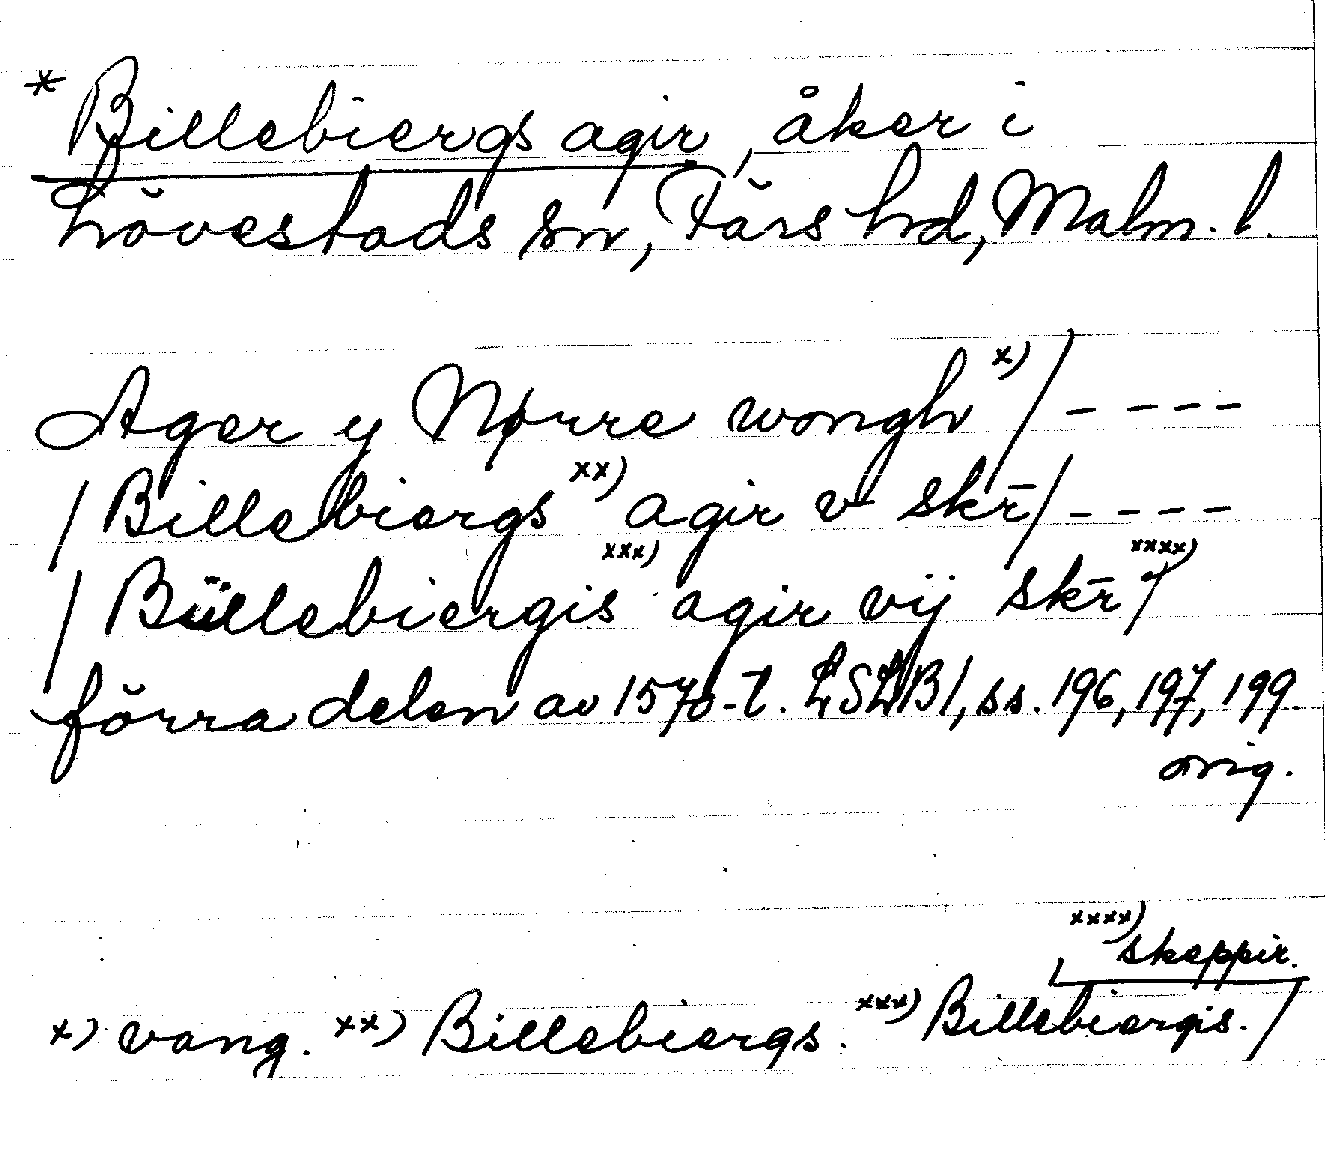 * Billebiergs agir, åker i
Lövestads sn, Färs hd, Malm. l.
Ager y Nørre wongh x) / ----
/ Billebiergs xx) agir v skr̄ / ----
/ Büllebiergis xxx) agir vij skr̄ xxxx) /
förra delen av 1570-t. LSLB1, ss. 196, 197, 199
orig.
xxxx) skeppir.
x) vang. xx) Billebiergs. xxx) Billebiergis. /